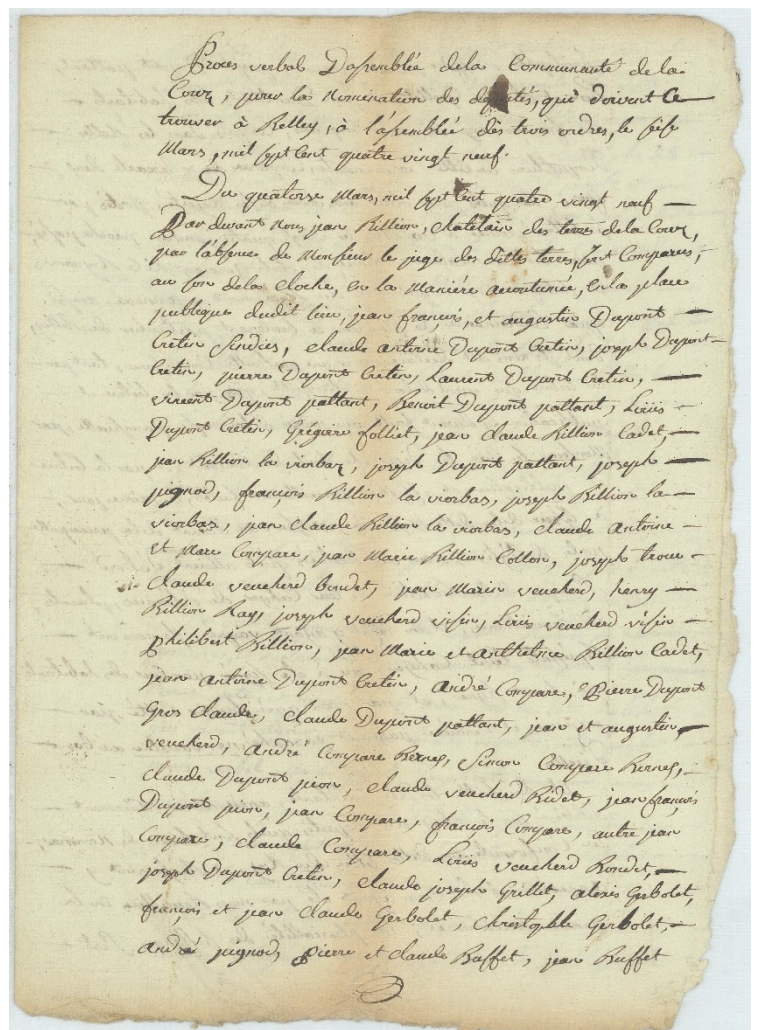 Proces verbal Dassemblée de la Communauté de la
Cour, pour la nomination des députés, qui doivent Ce
trouver à Belley, à l'assemblée dès trois ordres, le
Mars, mil sept Cent quatre vingt neuf.
Du quatorse Mars, mil sept Cent quatre vingt neuf
Par devant nous jean Billion, chatelain des terres de la Cour,
par l'absence de Monsieur le juge des dittes terres, sont Comparus,
au son de la cloche, en la Manière acoutumée, en la place
publique dudit lieu, jean françois, et augustin Dupont
Cretin sindics, claude antoine Dupont Cretin, joseph Dupont
Cretin, pierre Dupont Cretin, Laurent Dupont Cretin,
vincent Dupont pattant, Benoit Dupont pattant, Loüis
Dupont Cretin, Grégoire folliet, jean claude Billion Cadet,
jean Billion la viorbaz, joseph Dupont pattant, joseph
pignod, françois Billion la viorbas, joseph Billion la
viorbas, jean claude Billion la viorbas, claude antoine
et Marc Compare, jean Marie Billion Collon, joseph
claude veucherd boudet, jean Marin veucherd, henry
Billion Ray, joseph veucherd visin, Loüis veucherd visin
philibert Billion, jean Marie et anthelme Billion Cadet,
jean antoine Dupont Cretin, andré Compare, Pierre Dupont
Gros claude, claude Dupont pattant, jean et augustin
veucherd, andré Compare Bernes, Simon Compare Bernes,
claude Dupont pion, claude veucherd Bidet, jean françois
Dupont pion, jean Compare, françois Compare, autre jean
Compare, claude Compare, Loüis veucherd Boudet,
joseph Dupont Cretin, claude joseph Grillet, alexis Gerbolet,
françois et jean claude Gerbolet, Christophle Gerbolet,
andré pignod, pierre et claude Buffet, jean Buffet